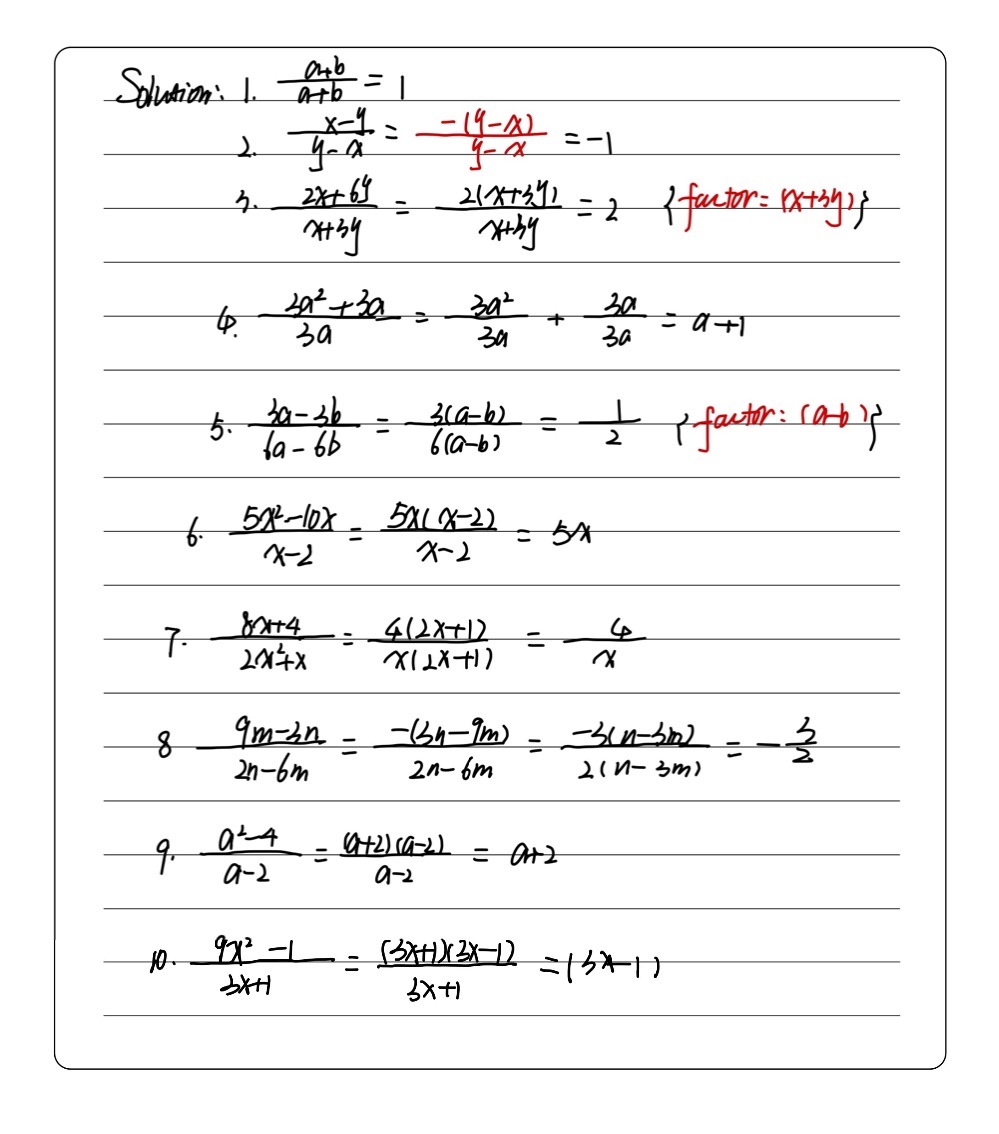 Solution: 1. (a+b)/(a+b) = 1
2. (x-y)/(y-x) = (-(y-x))/(y-x) = -1
3. (2x+6y)/(x+3y) = (2(x+3y))/(x+3y) = 2 {factor = (x+3y)}
4. (3a²+3a)/(3a) = (3a²)/(3a) + (3a)/(3a) = a+1
5. (3a-3b)/(6a-6b) = (3(a-b))/(6(a-b)) = 1/2 {factor: (a-b)}
6. (5x²-10x)/(x-2) = (5x(x-2))/(x-2) = 5x
7. (8x+4)/(2x²+x) = (4(2x+1))/(x(2x+1)) = 4/x
8 (9m-3n)/(2n-6m) = (-(3n-9m))/(2n-6m) = (-3(n-3m))/(2(n-3m)) = -3/2
9. (a²-4)/(a-2) = ((a+2)(a-2))/(a-2) = a+2
10. (9x²-1)/(3x+1) = ((3x+1)(3x-1))/(3x+1) = (3x-1)